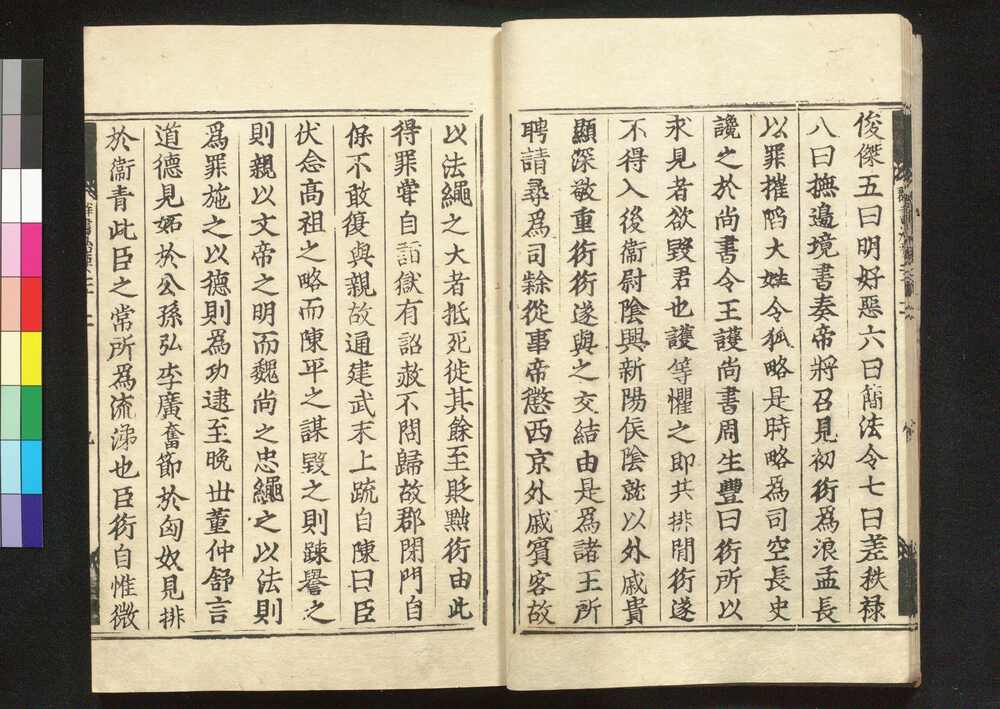 俊傑五曰明好惡六曰簡法令七曰差秩祿
八曰撫邊境書奏帝將召見初衍為浪孟長
以罪摧陷大姓令狐略是時略為司空長史
讒之於尚書令王護尚書周生豐曰衍所以
求見者欲毀君也護等懼之即共排閒衍遂
不得入後衞尉陰興新陽侯陰就以外戚貴
顯深敬重衍衍遂與之交結由是爲諸王所
聘請尋爲司隸從事帝懲西京外戚賓客故
以法繩之大者抵死徙其餘至貶黜衍由此
得罪甞自詣獄有詔赦不問歸故郡閉門自
保不敢復與親故通建武末上疏自陳曰臣
伏念髙祖之略而陳平之謀毀之則踈譽之
則親以文帝之明而魏尚之忠繩之以法則
爲罪施之以德則爲功逮至晚世董仲舒言
道德見妬於公孫弘李廣奮節於匈奴見排
於衞青此臣之常所爲流涕也臣衍自惟微